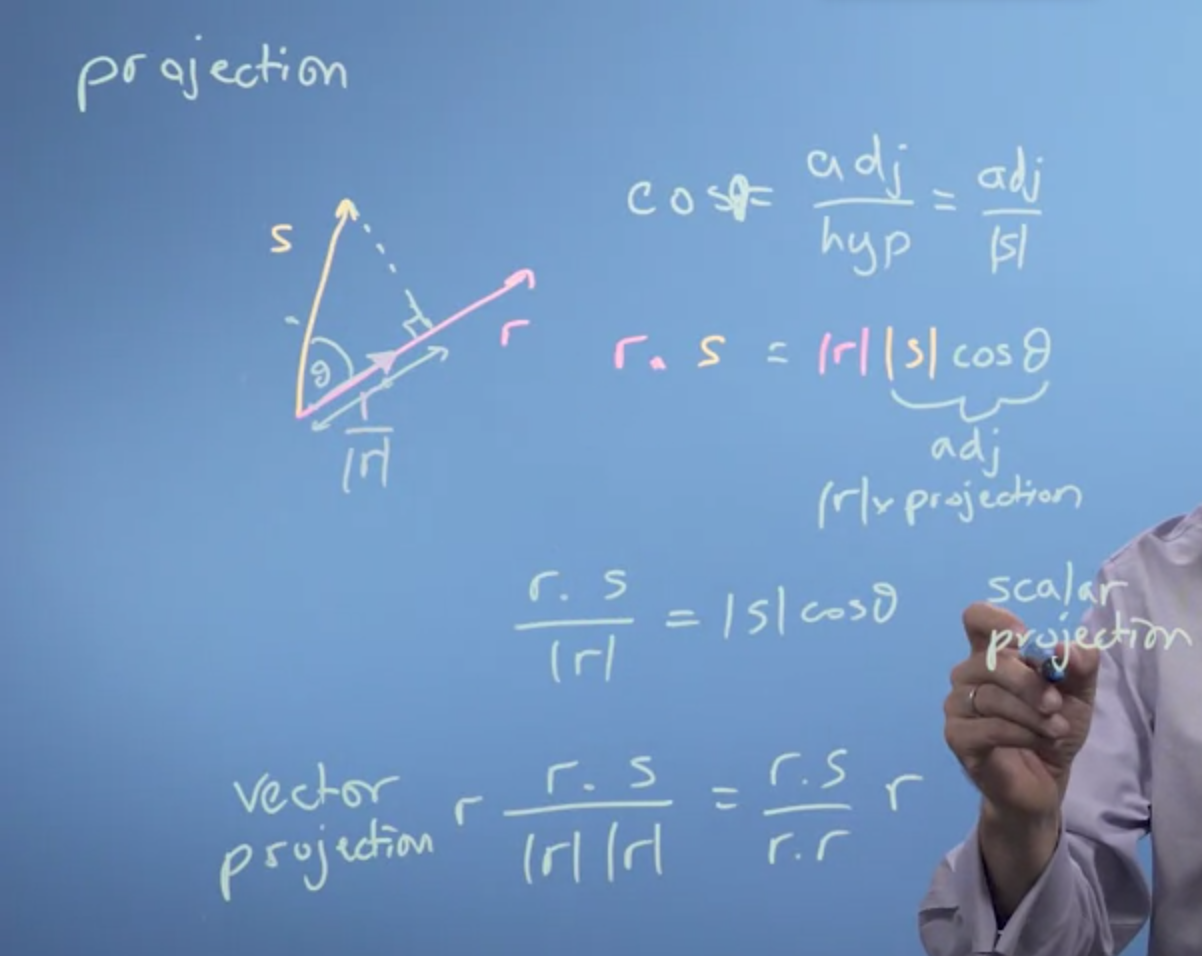 projection
cosθ = adj/hyp = adj/|s|
s
r
r. s = |r| |s| cosθ
θ
1/|r|
adj
|r|x projection
r. s/|r| = |s| cosθ
scalar
projection
vector
projection
r r. s/|r| |r| = r.s/r.r r